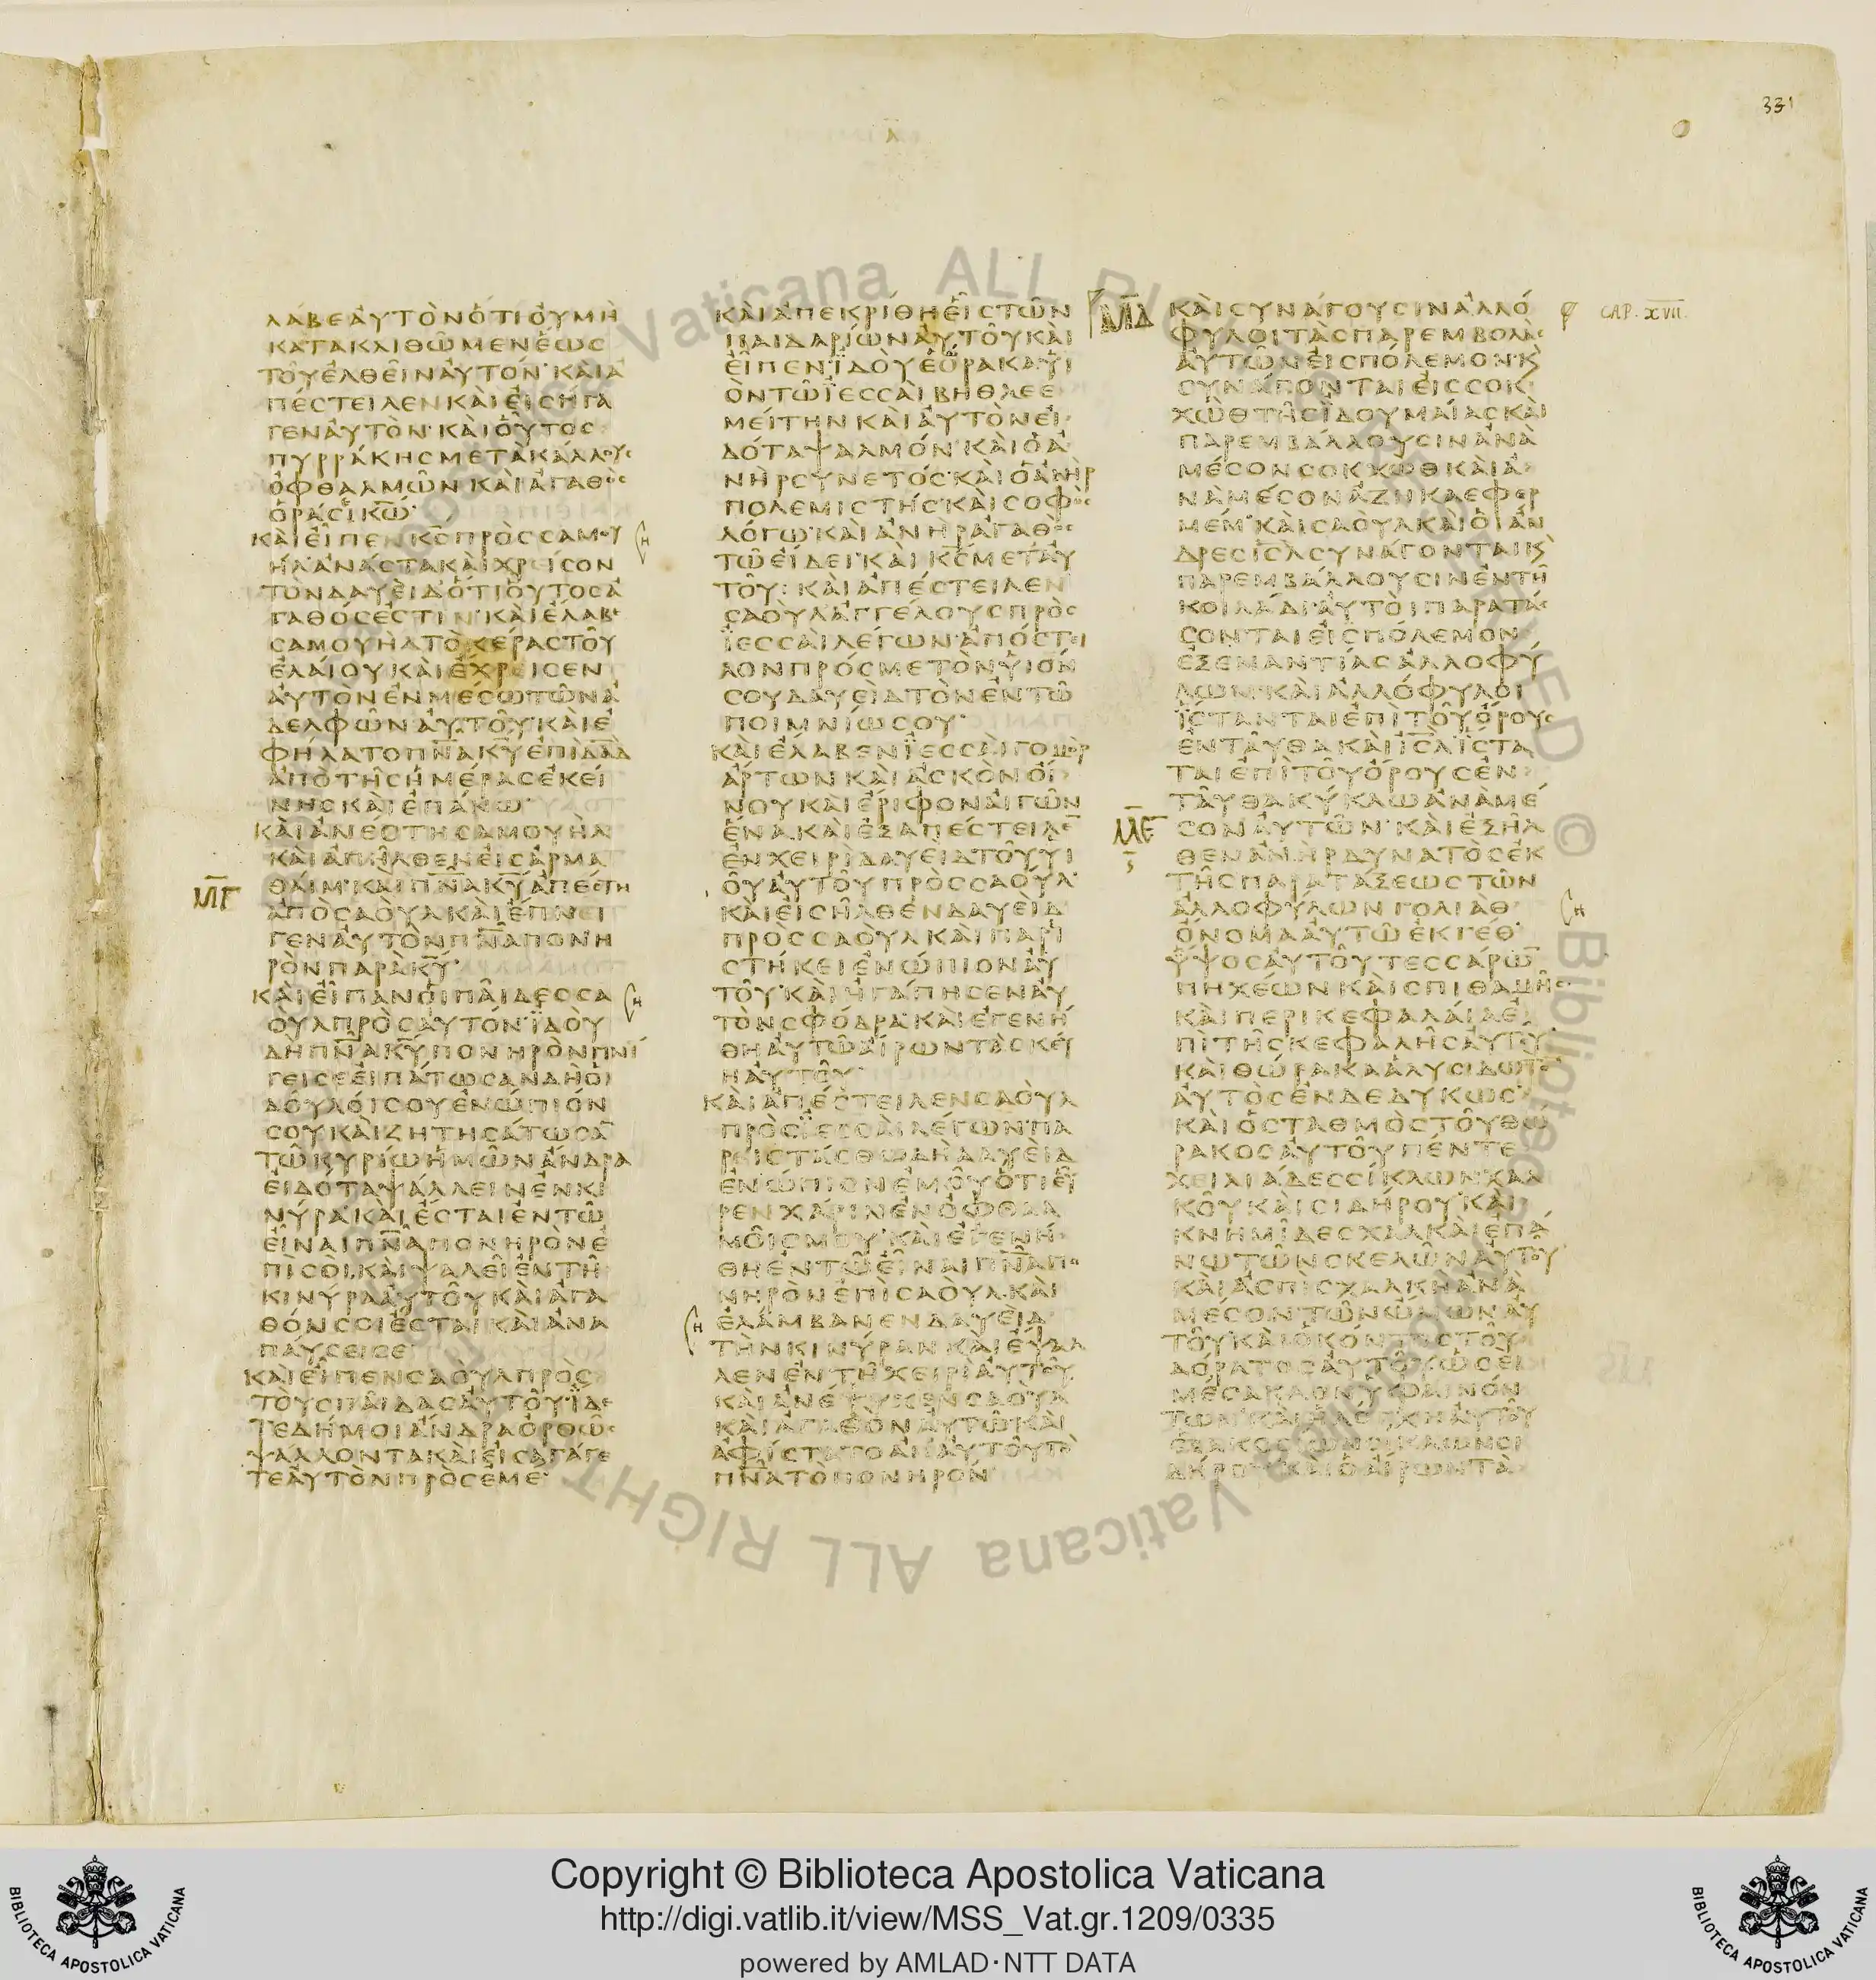 331
Λ
ΛΑΒΕΑΥΤΟΝΟΤΙΟΥΜΗ
ΚΑΤΑΚΛΙΘΩΜΕΝΕΩΣ
ΤΟΥΕΛΘΕΙΝΑΥΤΟΝ·ΚΑΙΑ
ΠΕΣΤΕΙΛΕΝΚΑΙΕΙΣΗΓΑ
ΓΕΝΑΥΤΟΝ·ΚΑΙΟΥΤΟΣ
ΠΥΡΡΑΚΗΣΜΕΤΑΚΑΛΛΟΥΣ
ΟΦΘΑΛΜΩΝΚΑΙΑΓΑΘΟΣ
ΟΡΑΣΙΚΩ·
ΚΑΙΕΙΠΕΝΚΣΠΡΟΣΣΑΜΟΥ
ΗΛΑΝΑΣΤΑΚΑΙΧΡΕΙΣΟΝ
ΤΟΝΔΑΥΕΙΔΟΤΙΟΥΤΟΣΑ
ΓΑΘΟΣΕΣΤΙΝ·ΚΑΙΕΛΑΒΕ
ΣΑΜΟΥΗΛΤΟΚΕΡΑΣΤΟΥ
ΕΛΑΙΟΥΚΑΙΕΧΡΕΙΣΕΝ
ΑΥΤΟΝΕΝΜΕΣΩΤΩΝΑ
ΔΕΛΦΩΝΑΥΤΟΥ·ΚΑΙΕ
ΦΗΛΑΤΟΠΝΑΚΥΕΠΙΔΑΔ
ΑΠΟΤΗΣΗΜΕΡΑΣΕΚΕΙ
ΝΗΣΚΑΙΕΠΑΝΩ·
ΚΑΙΑΝΕΣΤΗΣΑΜΟΥΗΛ
ΚΑΙΑΠΗΛΘΕΝΕΙΣΑΡΜΑ
ΜΓ
ΘΑΙΜ·ΚΑΙΠΝΑΚΥΑΠΕΣΤΗ
ΑΠΟΣΑΟΥΛΚΑΙΕΠΝΕΙ
ΓΕΝΑΥΤΟΝΠΝΑΠΟΝΗ
ΡΟΝΠΑΡΑΚΥ·
ΚΑΙΕΙΠΑΝΟΙΠΑΙΔΕΣΣΑ
ΟΥΛΠΡΟΣΑΥΤΟΝ·ΙΔΟΥ
ΔΗΠΝΑΚΥΠΟΝΗΡΟΝΠΝΙ
ΓΕΙΣΕΕΙΠΑΤΩΣΑΝΔΗΟΙ
ΔΟΥΛΟΙΣΟΥΕΝΩΠΙΟΝ
ΣΟΥΚΑΙΖΗΤΗΣΑΤΩΣΑ
ΤΩΚΥΡΙΩΗΜΩΝΑΝΔΡΑ
ΕΙΔΟΤΑΨΑΛΛΕΙΝΕΝΚΙ
ΝΥΡΑ·ΚΑΙΕΣΤΑΙΕΝΤΩ
ΕΙΝΑΙΠΝΑΠΟΝΗΡΟΝΕ
ΠΙΣΟΙ,ΚΑΙΨΑΛΕΙΕΝΤΗ
ΚΙΝΥΡΑΑΥΤΟΥΚΑΙΑΓΑ
ΘΟΝΣΟΙΕΣΤΑΙΚΑΙΑΝΑ
ΠΑΥΣΕΙΣΕ
ΚΑΙΕΙΠΕΝΣΑΟΥΛΠΡΟΣ
ΤΟΥΣΠΑΙΔΑΣΑΥΤΟΥ·ΙΔΕ
ΤΕΔΗΜΟΙΑΝΔΡΑΟΡΘΩΣ
ΨΑΛΛΟΝΤΑΚΑΙΕΙΣΑΓΑΓΕ
ΤΕΑΥΤΟΝΠΡΟΣΕΜΕ·
ΚΑΙΑΠΕΚΡΙΘΗΕΙΣΤΩΝ
ΠΑΙΔΑΡΙΩΝΑΥΤΟΥΚΑΙ
ΕΙΠΕΝ·ΙΔΟΥΕΟΡΑΚΑΥΙ
ΟΝΤΩΙΕΣΣΑΙΒΗΘΛΕΕ
ΜΕΙΤΗΝΚΑΙΑΥΤΟΝΕΙ
ΔΟΤΑΨΑΛΜΟΝ·ΚΑΙΟΑ
ΝΗΡΣΥΝΕΤΟΣ·ΚΑΙΟΑΝΗΡ
ΠΟΛΕΜΙΣΤΗΣ·ΚΑΙΣΟΦΟΣ
ΛΟΓΩ·ΚΑΙΑΝΗΡΑΓΑΘΟΣ
ΤΩΕΙΔΕΙ·ΚΑΙΚΣΜΕΤΑΥ
ΤΟΥ:ΚΑΙΑΠΕΣΤΕΙΛΕΝ
ΣΑΟΥΛΑΓΓΕΛΟΥΣΠΡΟΣ
ΙΕΣΣΑΙΛΕΓΩΝ·ΑΠΟΣΤΕΙ
ΛΟΝΠΡΟΣΜΕΤΟΝΥΙΟΝ
ΣΟΥΔΑΥΕΙΔΤΟΝΕΝΤΩ
ΠΟΙΜΝΙΩΣΟΥ·
ΚΑΙΕΛΑΒΕΝΙΕΣΣΑΙΓΟΜΟΡ
ΑΡΤΩΝΚΑΙΑΣΚΟΝΟΙ
ΝΟΥΚΑΙΕΡΙΦΟΝΑΙΓΩΝ
ΕΝΑΚΑΙΕΞΑΠΕΣΤΕΙΛΕ
ΕΝΧΕΙΡΙΔΑΥΕΙΔΤΟΥΥΙ
ΟΥΑΥΤΟΥΠΡΟΣΣΑΟΥΛ·
ΚΑΙΕΙΣΗΛΘΕΝΔΑΥΕΙΔ
ΠΡΟΣΣΑΟΥΛΚΑΙΠΑΡΙ
ΣΤΗΚΕΙΕΝΩΠΙΟΝΑΥ
ΤΟΥ·ΚΑΙΗΓΑΠΗΣΕΝΑΥ
ΤΟΝΣΦΟΔΡΑ·ΚΑΙΕΓΕΝΗ
ΘΗΑΥΤΩΑΙΡΩΝΤΑΣΚΕΥ
ΗΑΥΤΟΥ·
ΚΑΙΑΠΕΣΤΕΙΛΕΝΣΑΟΥΛ
ΠΡΟΣΙΕΣΣΑΙΛΕΓΩΝ·ΠΑ
ΡΕΙΣΤΑΣΘΩΔΗΔΑΥΕΙΔ
ΕΝΩΠΙΟΝΕΜΟΥΟΤΙΕΥ
ΡΕΝΧΑΡΙΝΕΝΟΦΘΑΛ
ΜΟΙΣΜΟΥ·ΚΑΙΕΓΕΝΗ
ΘΗΕΝΤΩΕΙΝΑΙΠΝΑΠΟ
ΝΗΡΟΝΕΠΙΣΑΟΥΛ·ΚΑΙ
ΕΛΑΜΒΑΝΕΝΔΑΥΕΙΔ
ΤΗΝΚΙΝΥΡΑΝΚΑΙΕΨΑΛ
ΛΕΝΕΝΤΗΧΕΙΡΙΑΥΤΟΥ
ΚΑΙΑΝΕΨΥΧΕΝΣΑΟΥΛ
ΚΑΙΑΓΑΘΟΝΑΥΤΩΚΑΙ
ΑΦΙΣΤΑΤΟΑΠΑΥΤΟΥΤΟ
ΠΝΑΤΟΠΟΝΗΡΟΝ·
ΜΔ
ΚΑΙΣΥΝΑΓΟΥΣΙΝΑΛΛΟ
CAP. XVII.
ΦΥΛΟΙΤΑΣΠΑΡΕΜΒΟΛΑΣ
ΑΥΤΩΝΕΙΣΠΟΛΕΜΟΝ·Κ
ΣΥΝΑΓΟΝΤΑΙΕΙΣΣΟΚ
ΧΩΘΤΗΣΙΔΟΥΜΑΙΑΣΚΑΙ
ΠΑΡΕΜΒΑΛΛΟΥΣΙΝΑΝΑ
ΜΕΣΟΝΣΟΚΧΩΘΚΑΙΑ
ΝΑΜΕΣΟΝΑΖΗΚΑΕΦΕΡ
ΜΕΜ·ΚΑΙΣΑΟΥΛΚΑΙΟΙΑΝ
ΔΡΕΣΙΣΛΣΥΝΑΓΟΝΤΑΙΚ
ΠΑΡΕΜΒΑΛΛΟΥΣΙΝΕΝΤΗ
ΚΟΙΛΑΔΙ·ΑΥΤΟΙΠΑΡΑΤΑΣ
ΣΟΝΤΑΙΕΙΣΠΟΛΕΜΟΝ
ΕΞΕΝΑΝΤΙΑΣΑΛΛΟΦΥ
ΛΩΝ·ΚΑΙΑΛΛΟΦΥΛΟΙ
ΙΣΤΑΝΤΑΙΕΠΙΤΟΥΟΡΟΥΣ
ΕΝΤΑΥΘΑΚΑΙΙΣΛΙΣΤΑ
ΤΑΙΕΠΙΤΟΥΟΡΟΥΣΕΝ
ΤΑΥΘΑΚΥΚΛΩΑΝΑΜΕ
ΜΕ
ΣΟΝΑΥΤΩΝ·ΚΑΙΕΞΗΛ
ΘΕΝΑΝΗΡΔΥΝΑΤΟΣΕΚ
ΤΗΣΠΑΡΑΤΑΞΕΩΣΤΩΝ
ΑΛΛΟΦΥΛΩΝΓΟΛΙΑΘ
ΟΝΟΜΑΑΥΤΩΕΚΓΕΘ
ΥΨΟΣΑΥΤΟΥΤΕΣΣΑΡΩ
ΠΗΧΕΩΝΚΑΙΣΠΙΘΑΜΗΣ
ΚΑΙΠΕΡΙΚΕΦΑΛΑΙΑΕ
ΠΙΤΗΣΚΕΦΑΛΗΣΑΥΤΟΥ
ΚΑΙΘΩΡΑΚΑΑΛΥΣΙΔΩΤΟ
ΑΥΤΟΣΕΝΔΕΔΥΚΩΣ·
ΚΑΙΟΣΤΑΘΜΟΣΤΟΥΘΩ
ΡΑΚΟΣΑΥΤΟΥΠΕΝΤΕ
ΧΕΙΛΙΑΔΕΣΣΙΚΛΩΝΧΑΛ
ΚΟΥΚΑΙΣΙΔΗΡΟΥ·ΚΑΙ
ΚΝΗΜΙΔΕΣΧΑΛΚΑΙΕΠΑ
ΝΩΤΩΝΣΚΕΛΩΝΑΥΤΟΥ
ΚΑΙΑΣΠΙΣΧΑΛΚΗΑΝΑ
ΜΕΣΟΝΤΩΝΩΜΩΝΑΥ
ΤΟΥ·ΚΑΙΟΚΟΝΤΟΣΤΟΥ
ΔΟΡΑΤΟΣΑΥΤΟΥΩΣΕΙ
ΜΕΣΑΚΛΟΝΥΦΑΙΝΟΝ
ΤΩΝ·ΚΑΙΗΛΟΓΧΗΑΥΤΟΥ
ΔΗΡΟΥ·ΚΑΙΟΑΙΡΩΝΤΑ
Vaticana ALL RIGHT
© Biblioteca
Vaticana ALL RIGHT
Copyright © Biblioteca Apostolica Vaticana
http://digi.vatlib.it/view/MSS_Vat.gr.1209/0335
powered by AMLAD·NTT DATA
BIBLIOTECA APOSTOLICA VATICANA
BIBLIOTECA APOSTOLICA VATICANA